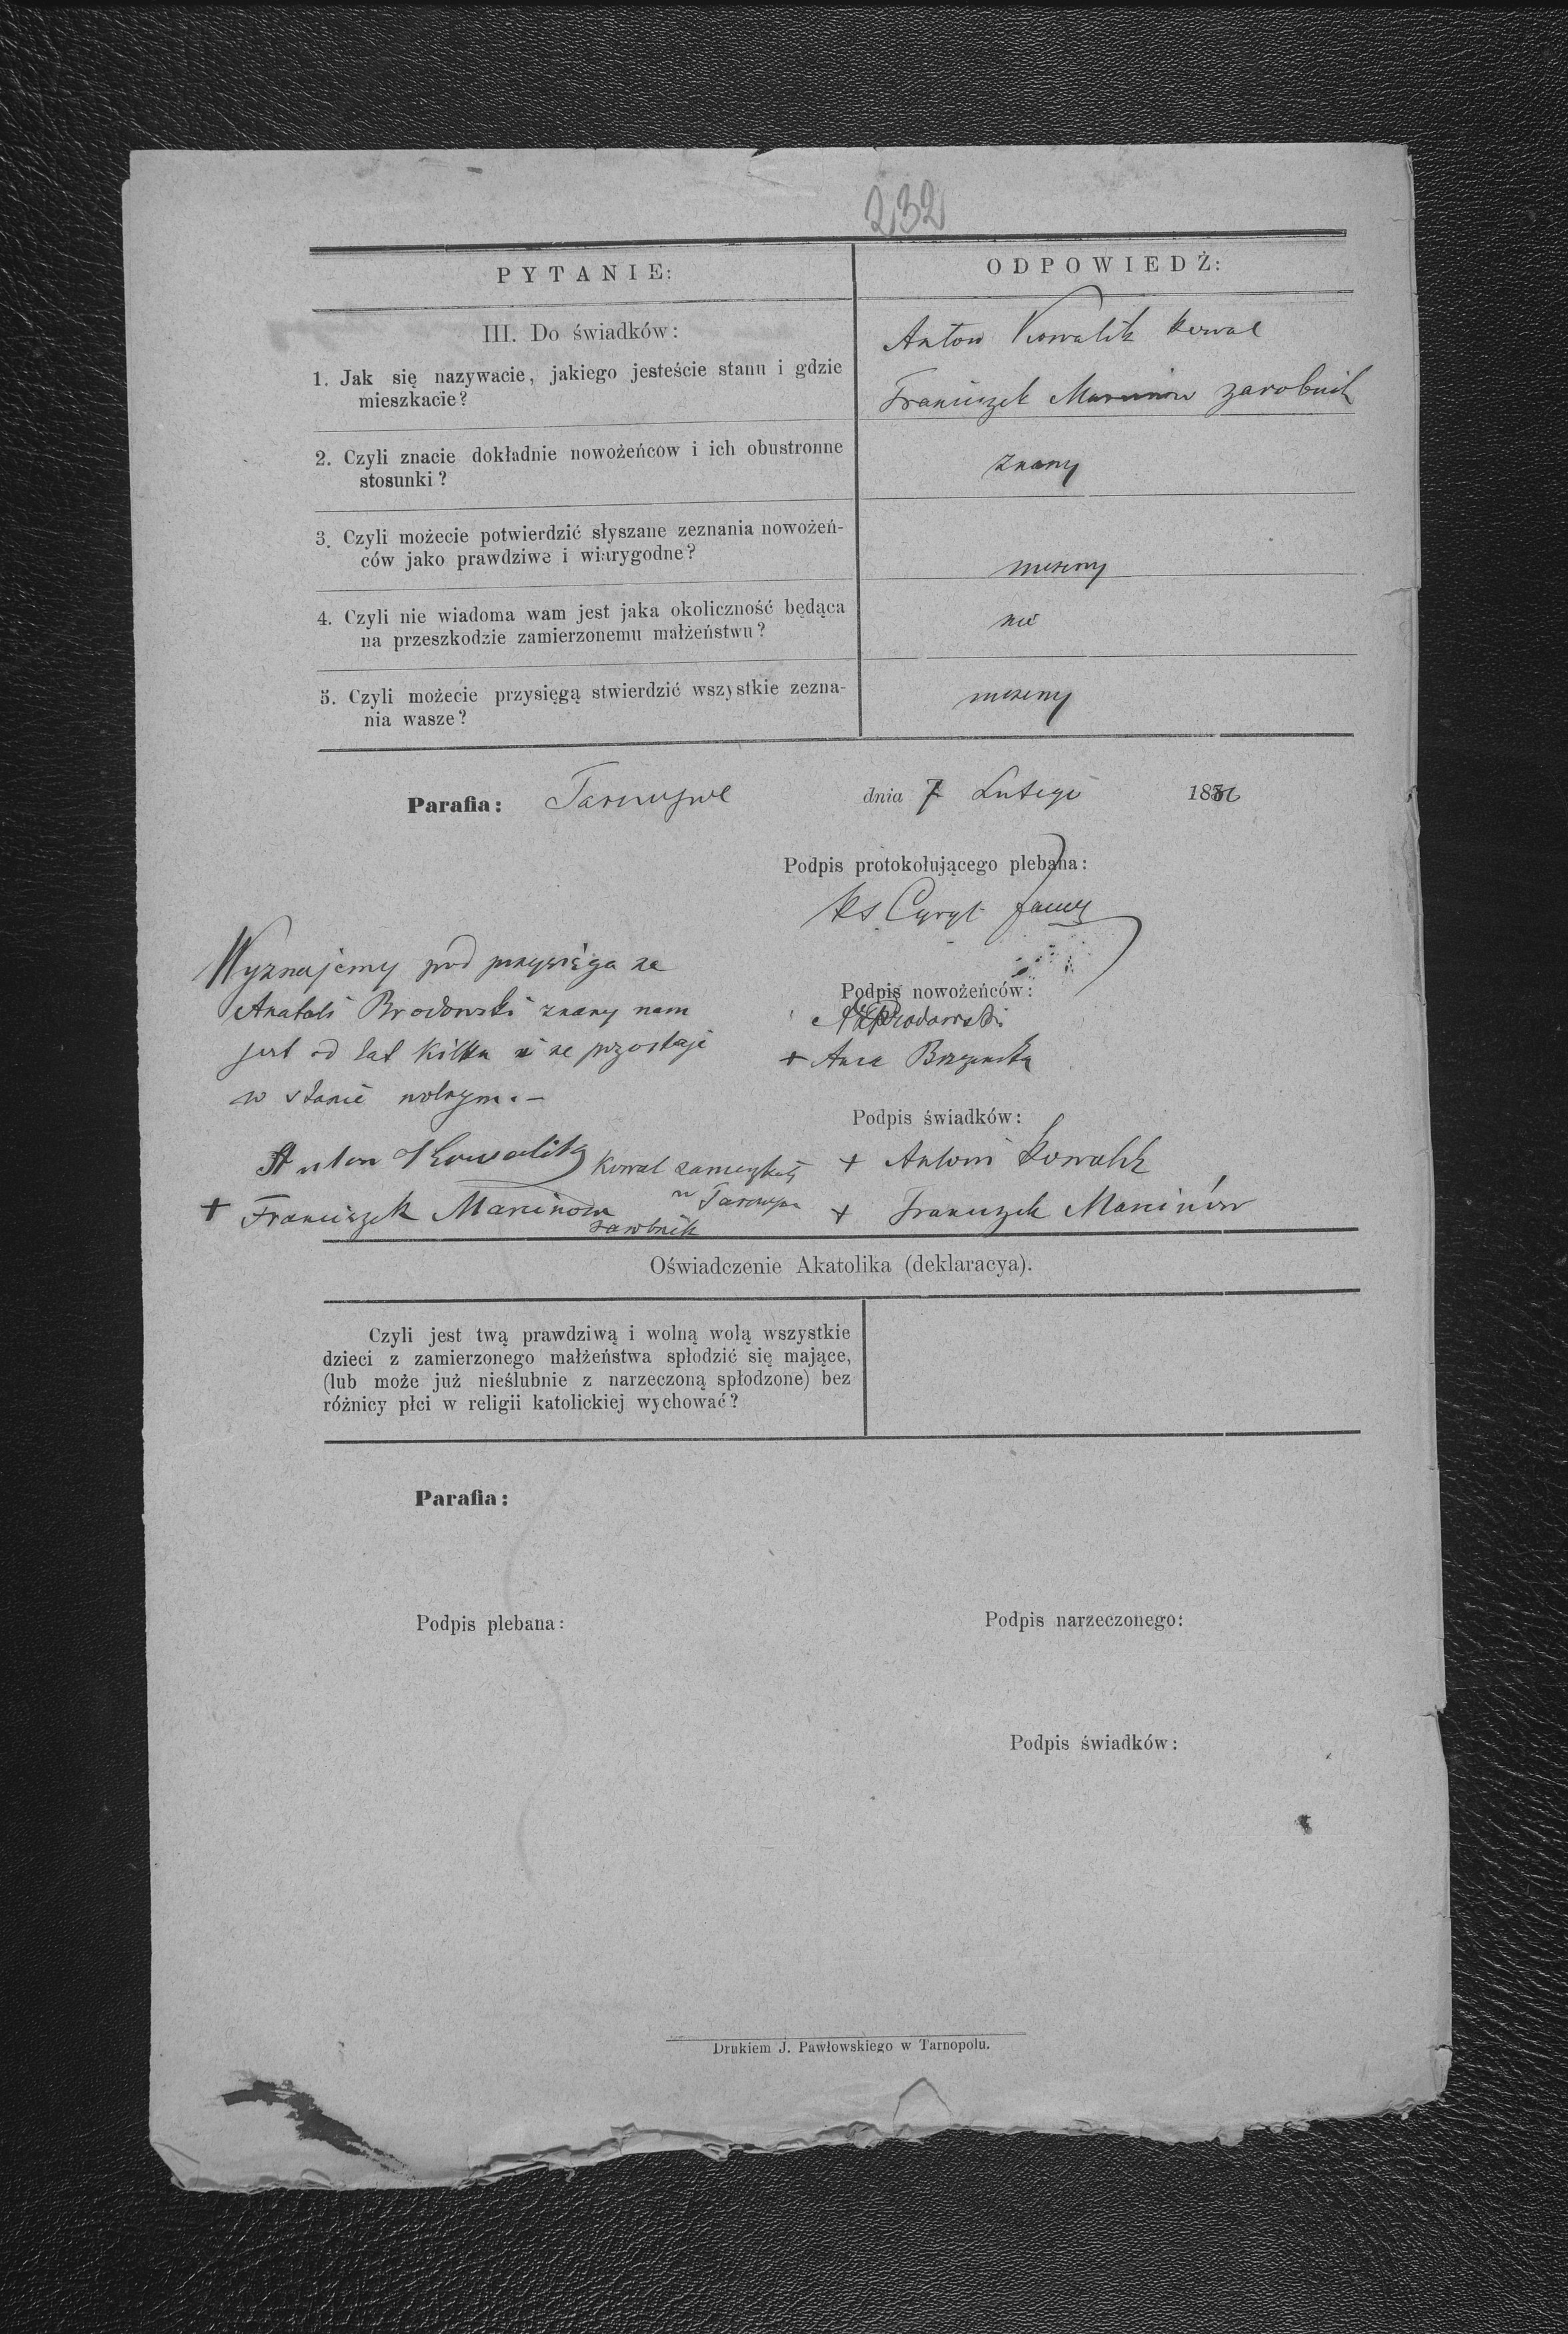 232
PYTANIE:
ODPOWIEDŹ:
III. Do świadków:
1. Jak się nazywacie, jakiego jesteście stanu i gdzie
mieszkacie?
Anton Kowalik kowal
Franciszek Marcinow zarobnik
2. Czyli znacie dokładnie nowożeńcow i ich obustronne
stosunki?
znamy
3. Czyli możecie potwierdzić słyszane zeznania nowożeń-
ców jako prawdziwe i wiarygodne?
mozemy
4. Czyli nie wiadoma wam jest jaka okoliczność będąca
na przeszkodzie zamierzonemu małżeństwu?
nie
5. Czyli możecie przysięgą stwierdzić wszystkie zezna-
nia wasze?
mozemy
Parafia:
dnia 7 Lutego 1886
Podpis protokołującego plebana:
ks Cyryl
Wyznajemy pod przysięga ze
Anatoli Brodowski znany nam
jest od lat kilku i ze pozostaje
w stanie wolnym. –
Podpis nowożeńców:
Brodowski
+ Anna
Podpis świadków:
Anton Kowalik kowal
+ Franciszek Marcinow
zarobnik
+ Antoni Kowalik
+ Franciszek Marcinów
Oświadczenie Akatolika (deklaracya).
Czyli jest twą prawdziwą i wolną wolą wszystkie
dzieci z zamierzonego małżeństwa spłodzić się mające,
(lub może już nieślubnie z narzeczoną spłodzone) bez
różnicy płci w religii katolickiej wychować?
Parafia:
Podpis plebana:
Podpis narzeczonego:
Podpis świadków:
Drukiem J. Pawłowskiego w Tarnopolu.